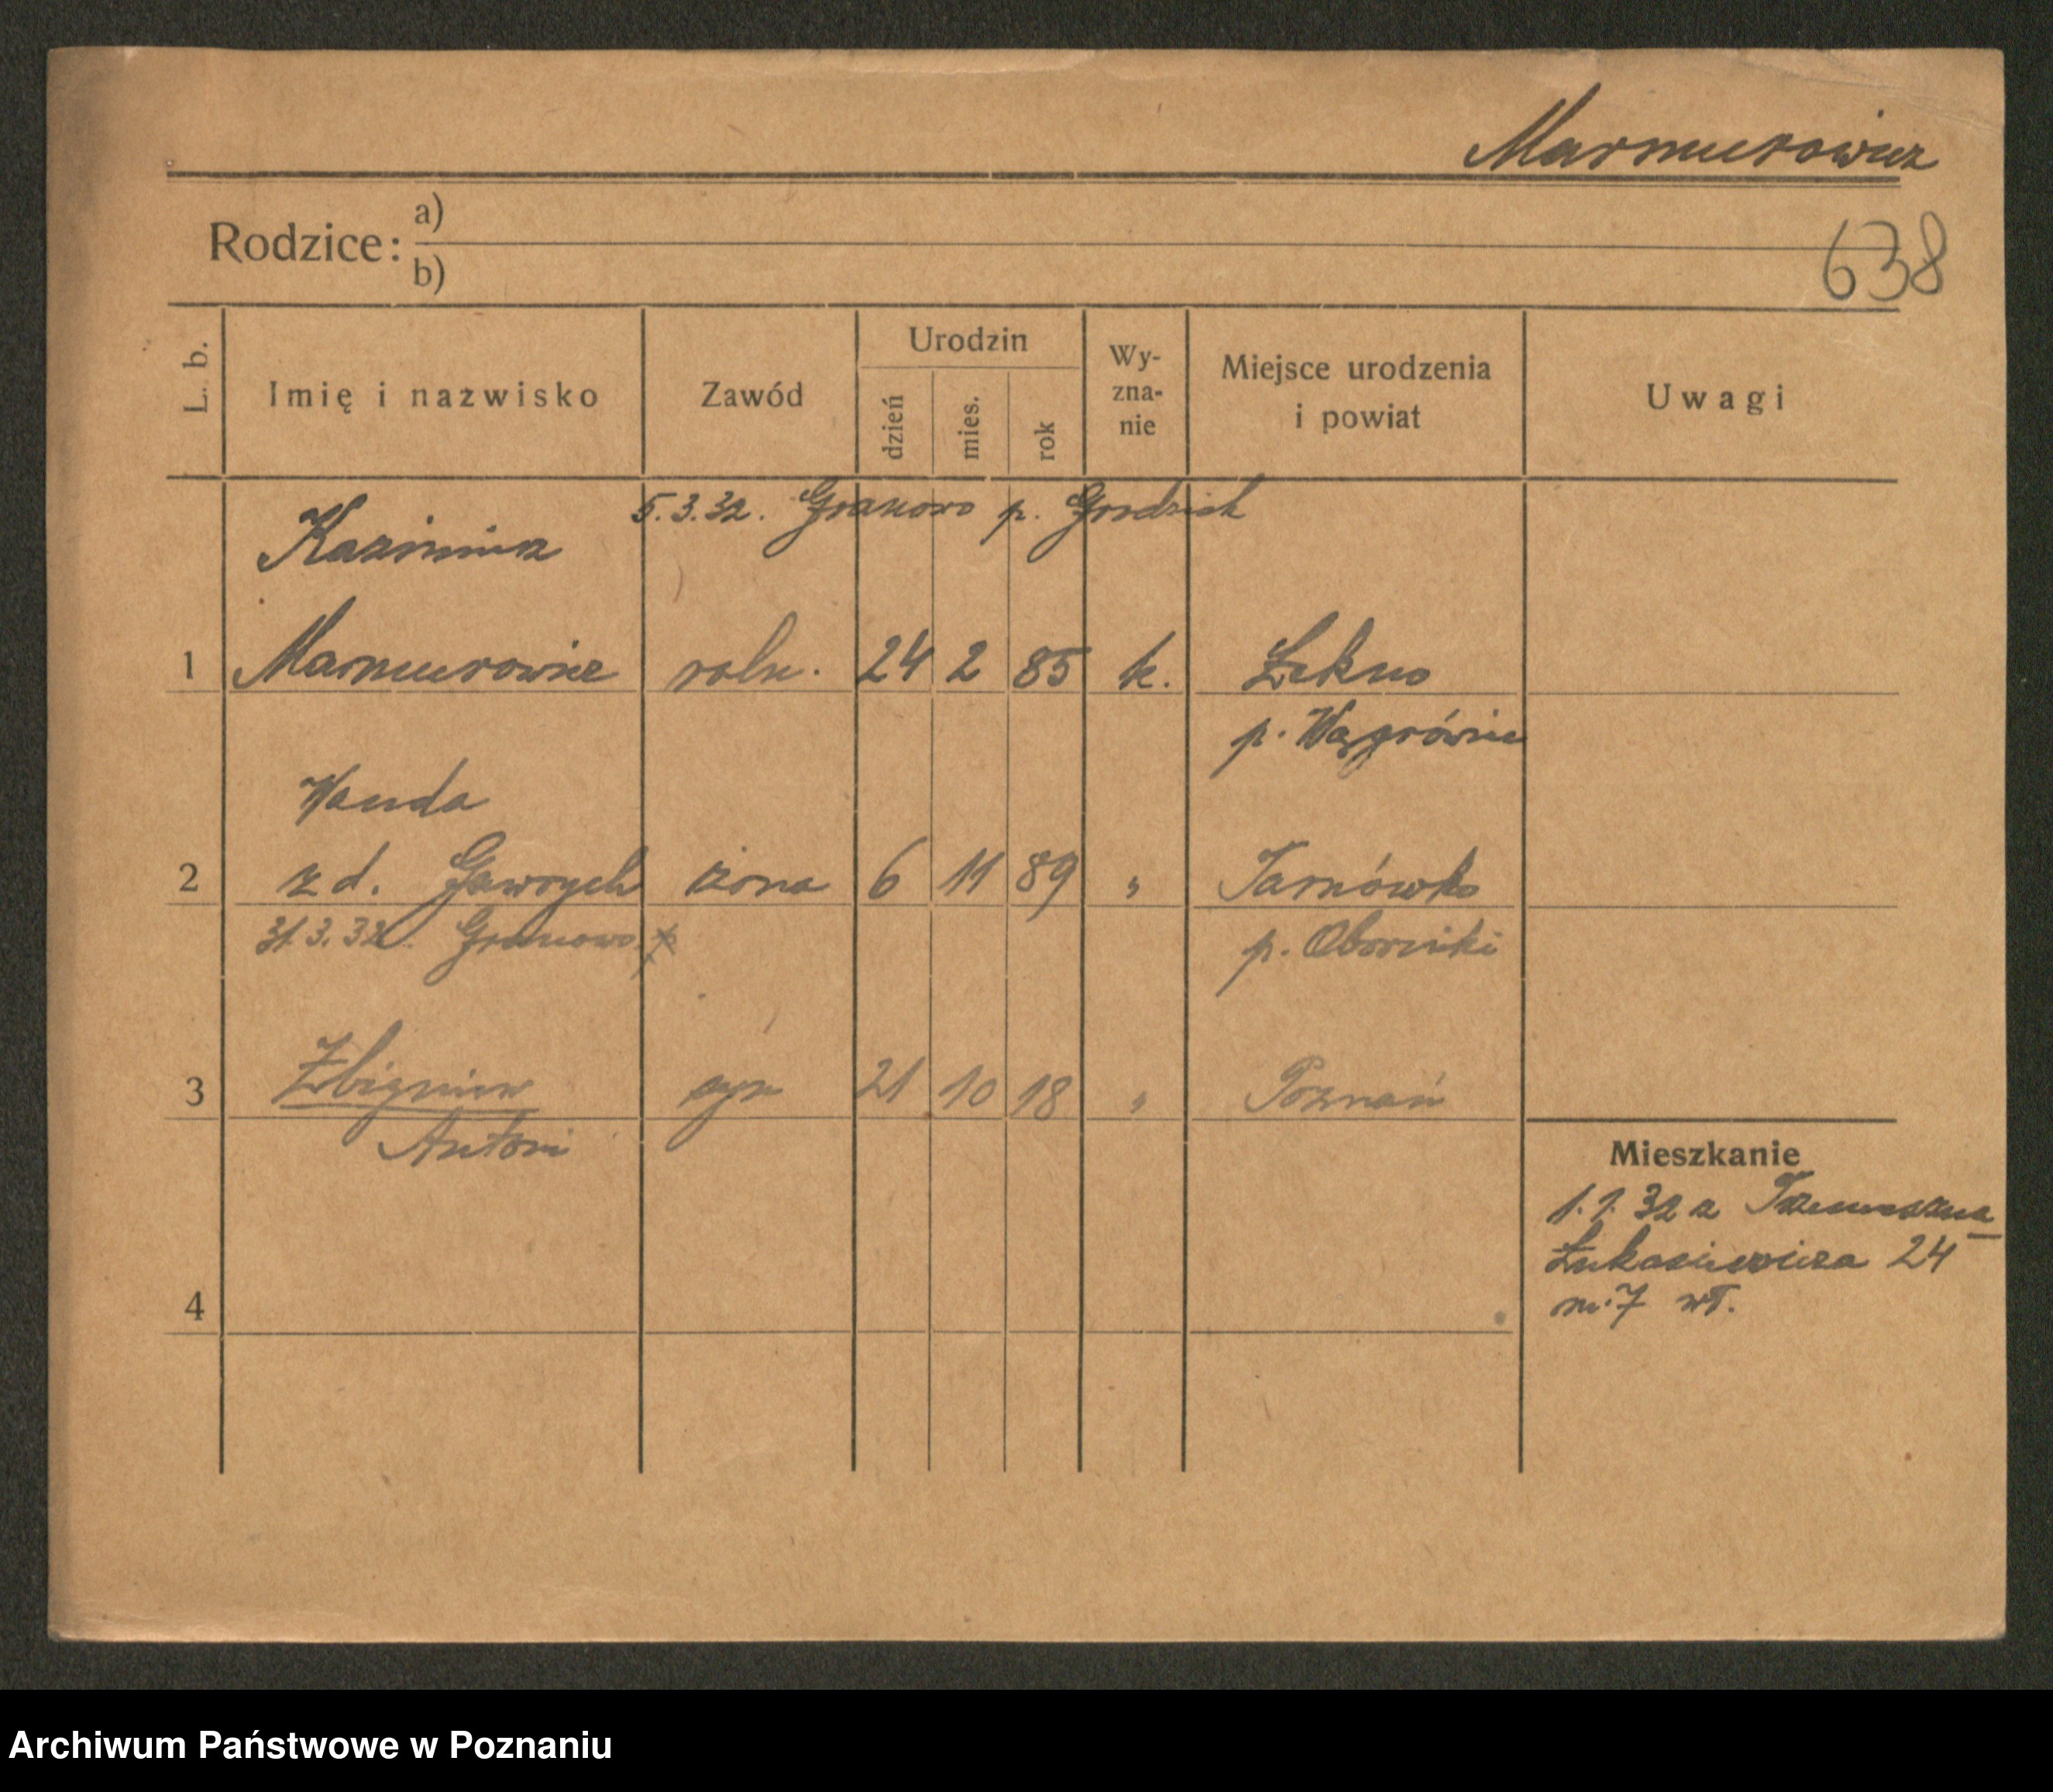 Marmurowicz
Rodzice: a)
b)
638
L. b. Imię i nazwisko Zawód Urodzin dzień mies. rok Wy-zna-nie Miejsce urodzenia i powiat Uwagi
5.3.32. Granowo p. Grodzisk
Kazimierz
1 Marmurowicz roln. 24 2 85 k. Łekno
p. Wągrówiec
Wanda
2 z d. Gawrych żona 6 11 89 " Tarnówko
31.3.32. Granowo p. Oborniki
3 Zbigniew syn 21 10 18 " Poznań
Antoni
Mieszkanie
1.1.32 z Trzemeszna
Łukasiewicza 24
4 m.7 wł.
Archiwum Państwowe w Poznaniu